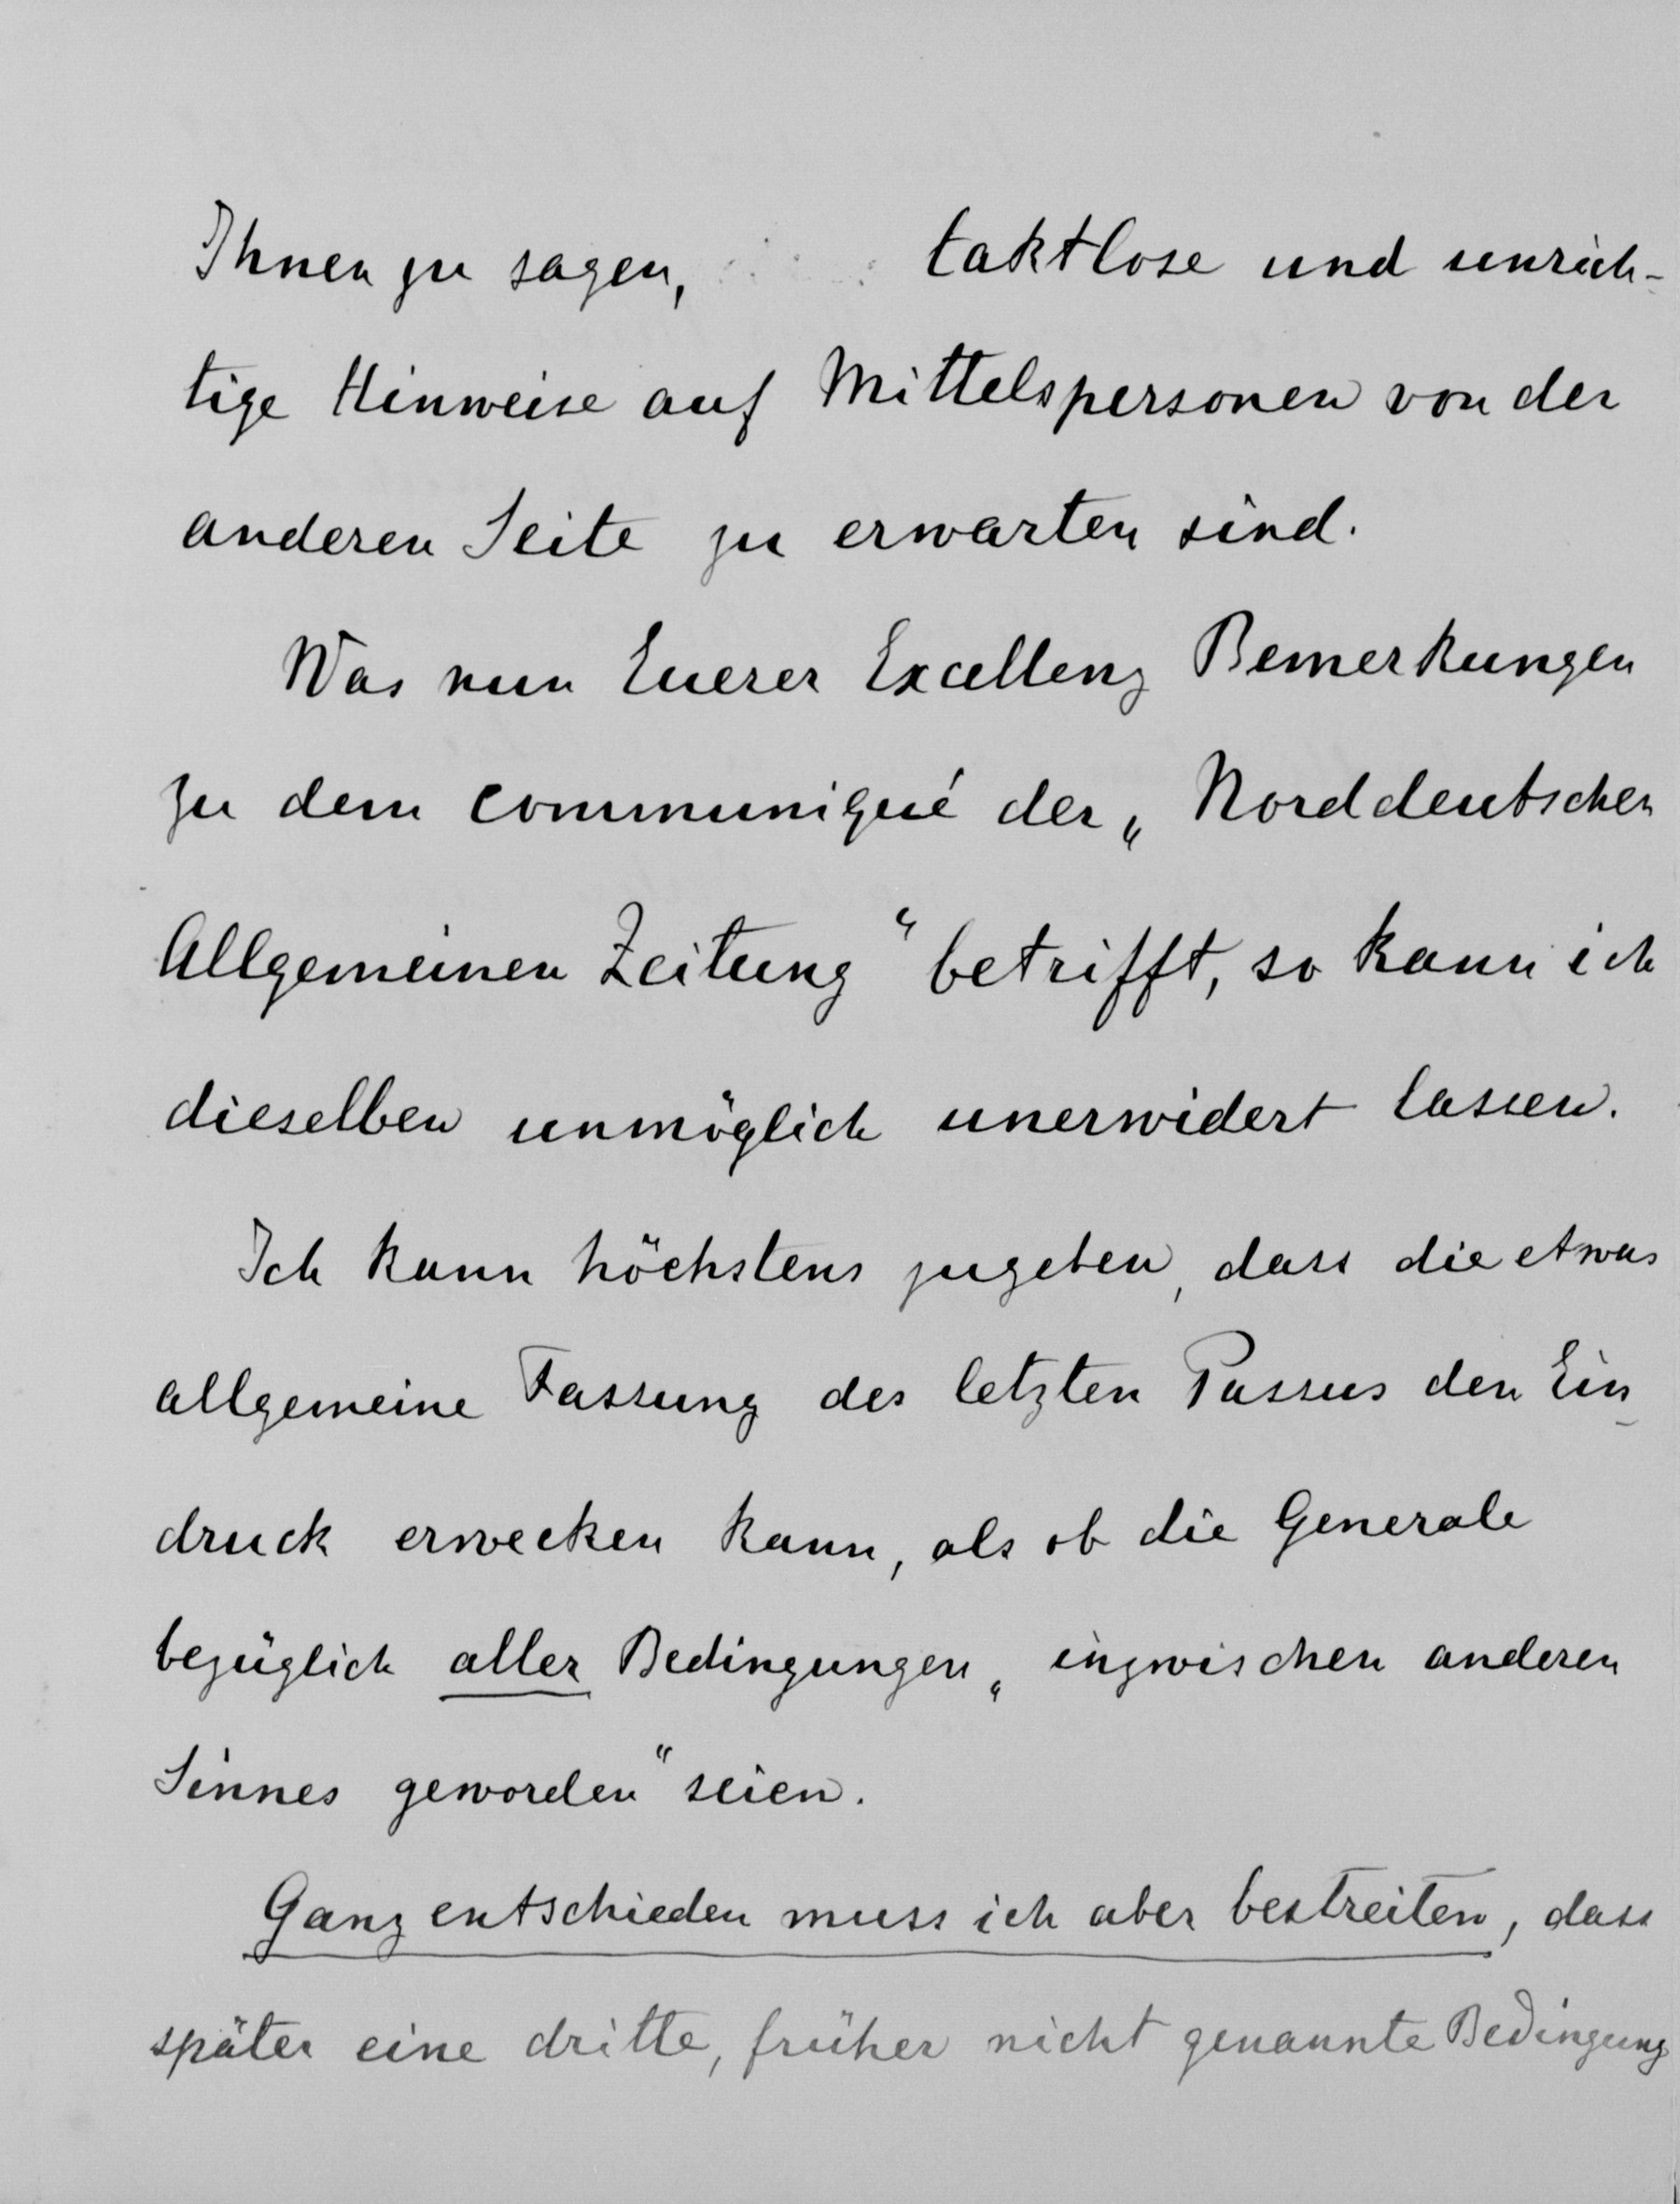 Ihnen zu sagen, taktlose und unrich-
tige Hinweise auf Mittelspersonen von der
anderen Seite zu erwarten sind.
Was nun Euerer Excellenz Bemerkungen
zu dem communiqué der „Norddeutschen
Allgemeinen Zeitung“ betrifft, so kann ich
dieselben unmöglich unerwidert lassen.
Ich kann höchstens zugeben, dass die etwas
allgemeine Fassung des letzten Passus den Ein-
druck erwecken kann, als ob die Generale
bezüglich aller Bedingungen „inzwischen anderen
Sinnes geworden“ seien.
Ganz entschieden muss ich aber bestreiten, dass
später eine dritte, früher nicht genannte Bedingung